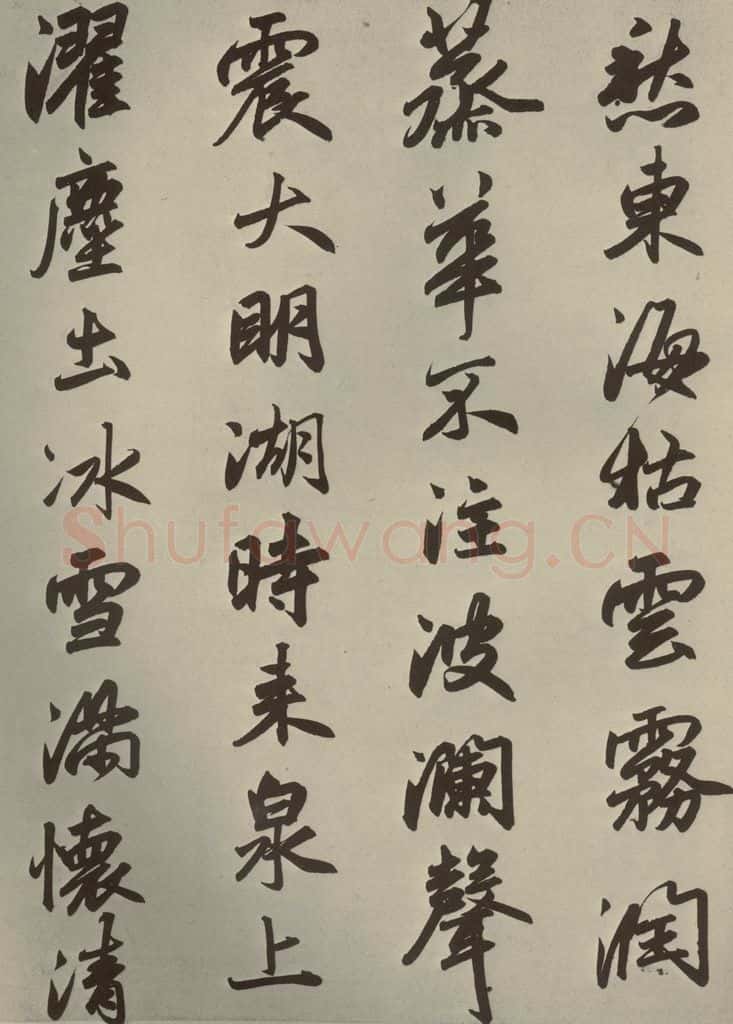 愁東海枯雲霧潤
蒸華不注波瀾聲
震大明湖時来泉上
濯塵土冰雪滿懷清
Shufawang.CN